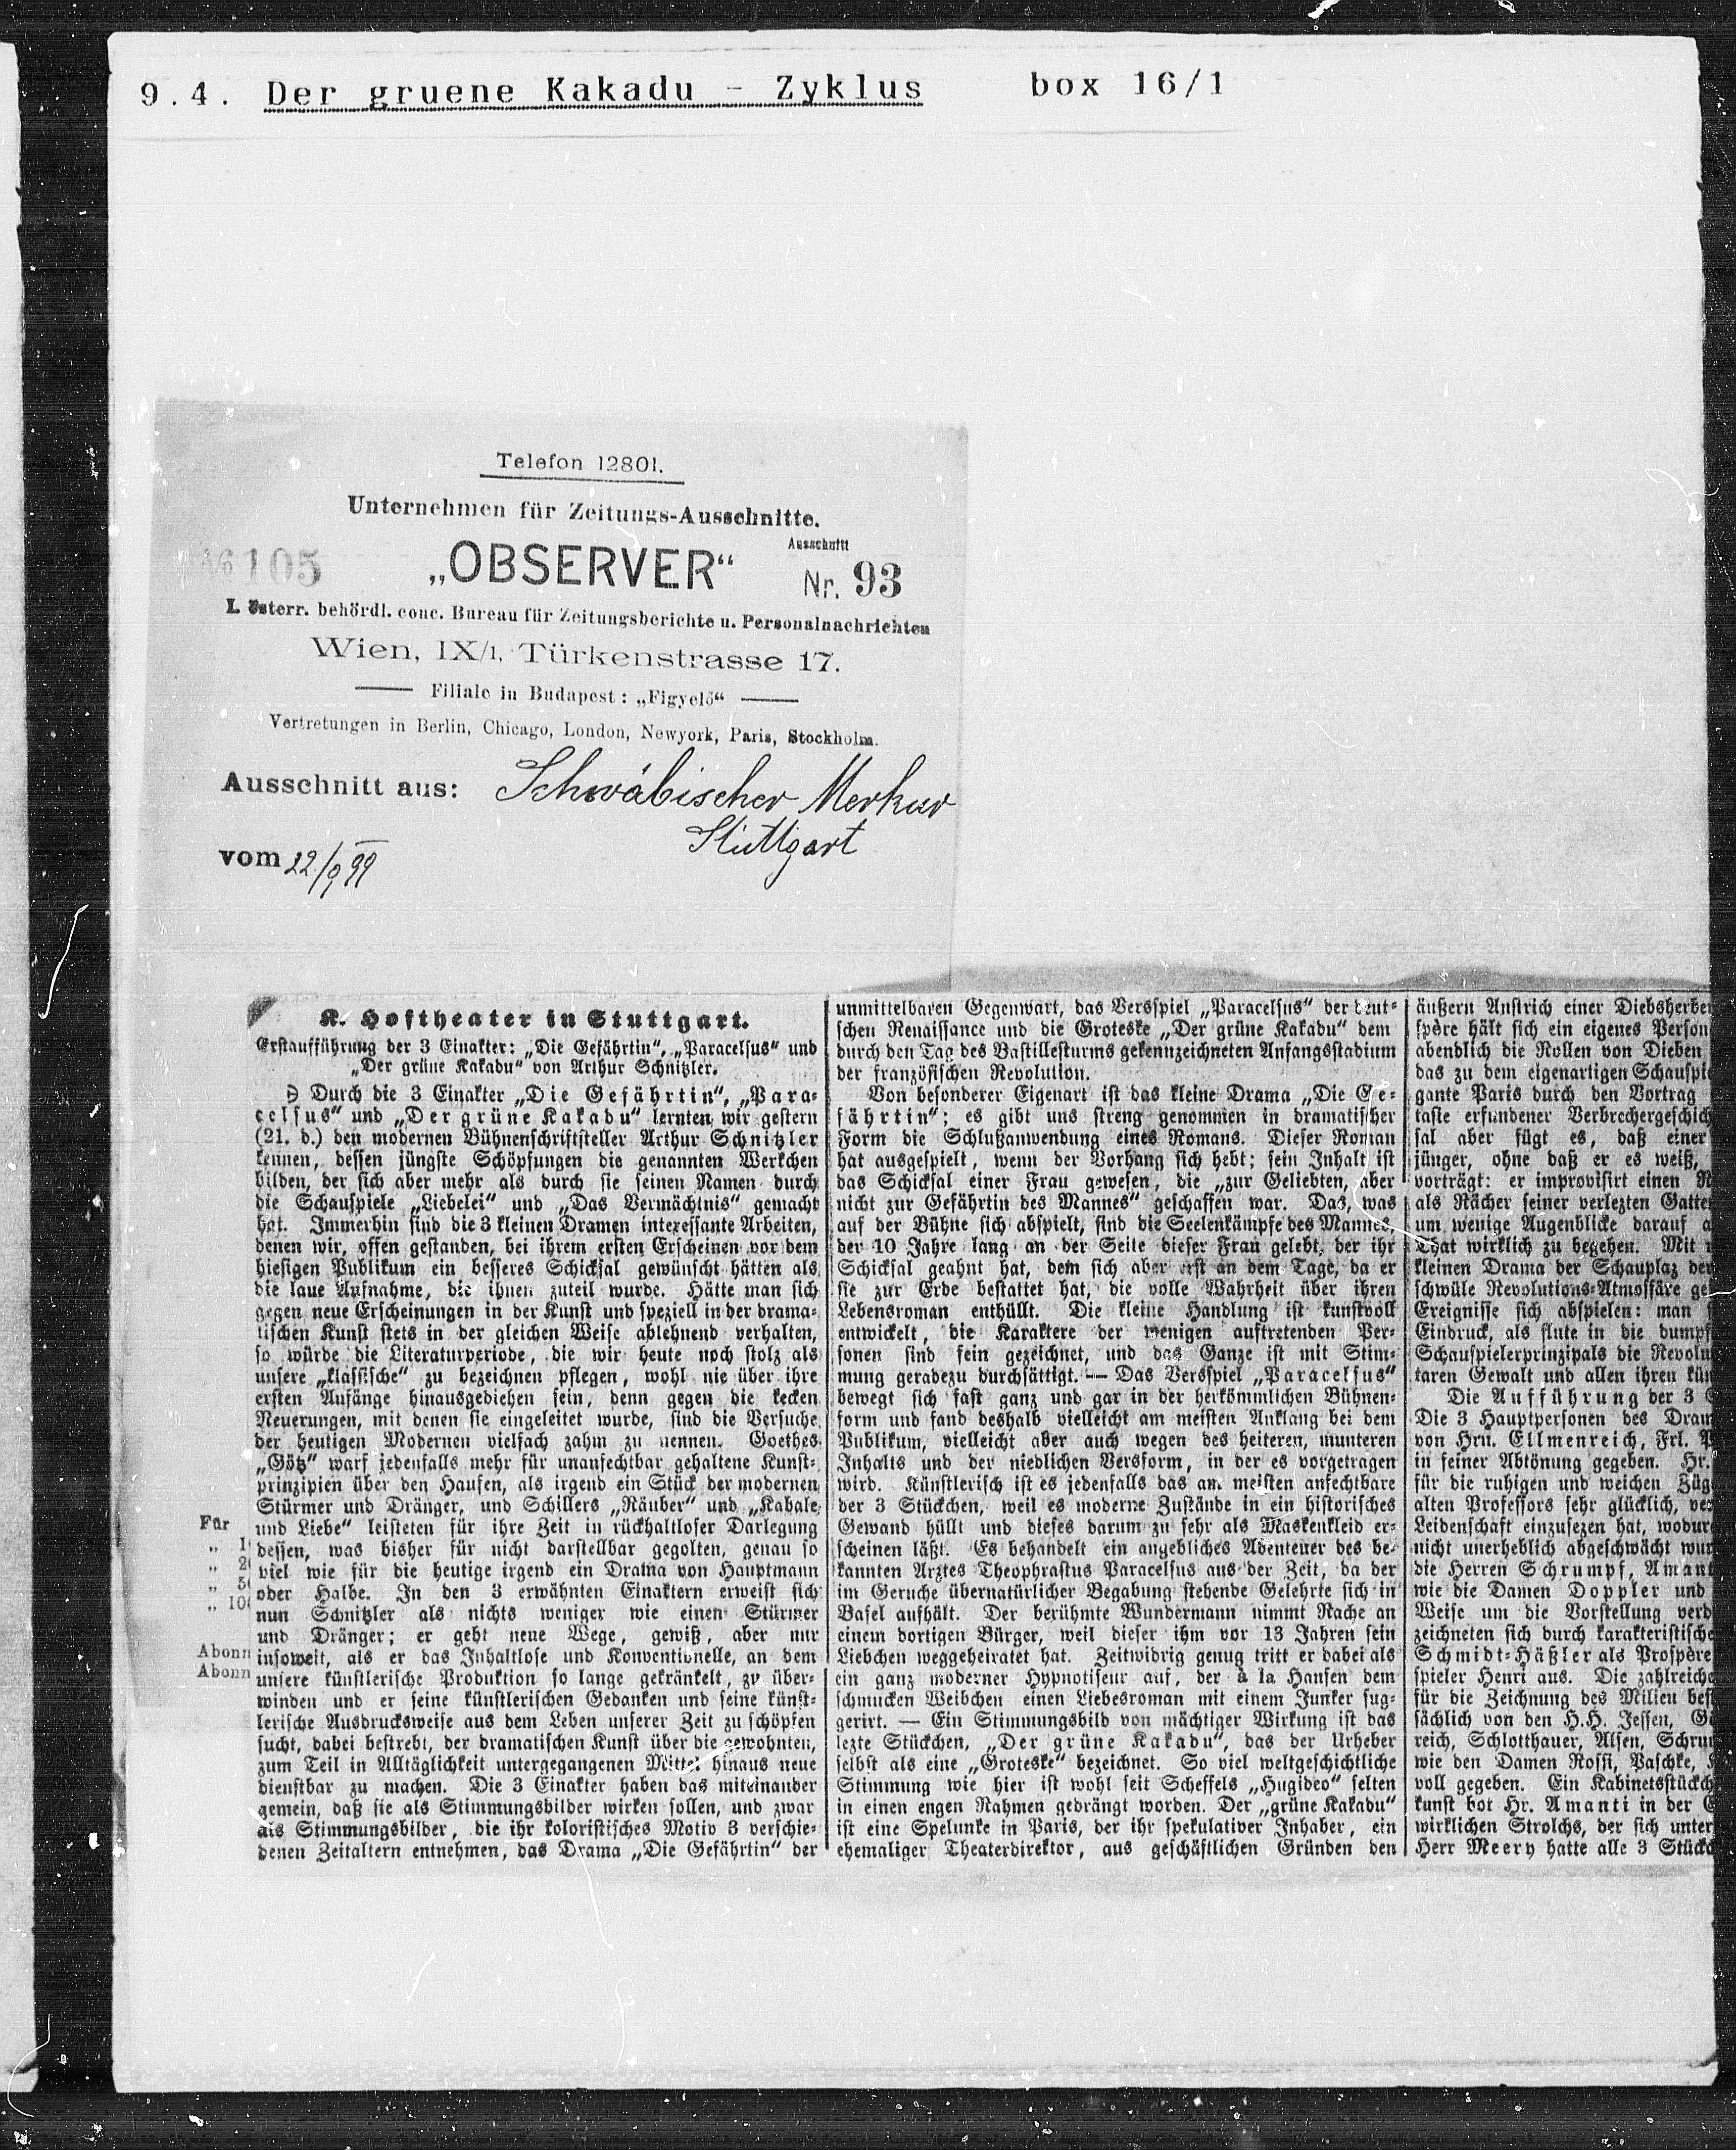 9.4. Der gruene Kakadu - Zyklus box 16/1
Telefon 12801.
Unternehmen für Zeitungs-Ausschnitte.
№ 105 „OBSERVER“ Ausschnitt Nr. 93
I. österr. behördl. conc. Bureau für Zeitungsberichte u. Personalnachrichten
Wien, IX/1, Türkenstrasse 17.
Filiale in Budapest: „Figyelő“
Vertretungen in Berlin, Chicago, London, Newyork, Paris, Stockholm.
Ausschnitt aus: Schwäbischer Merkur
Stuttgart
vom 22/9 99
Für
„ 1
„ 2
„ 5
„ 10
Abonn
Abonn
K. Hoftheater in Stuttgart.
Erstaufführung der 3 Einakter: „Die Gefährtin“, „Paracelsus“ und
„Der grüne Kakadu“ von Arthur Schnitzler.
Durch die 3 Einakter „Die Gefährtin“, „Para-
celsus“ und „Der grüne Kakadu“ lernten wir gestern
(21. d.) den modernen Bühnenschriftsteller Arthur Schnitzler
kennen, dessen jüngste Schöpfungen die genannten Werkchen
bilden, der sich aber mehr als durch sie seinen Namen durch
die Schauspiele „Liebelei“ und „Das Vermächtnis“ gemacht
hat. Immerhin sind die 3 kleinen Dramen interessante Arbeiten,
denen wir, offen gestanden, bei ihrem ersten Erscheinen vor dem
hiesigen Publikum ein besseres Schicksal gewünscht hätten als
die laue Aufnahme, die ihnen zuteil wurde. Hätte man sich
gegen neue Erscheinungen in der Kunst und speziell in der drama-
tischen Kunst stets in der gleichen Weise ablehnend verhalten,
so würde die Literaturperiode, die wir heute noch stolz als
unsere „klassische“ zu bezeichnen pflegen, wohl nie über ihre
ersten Anfänge hinausgediehen sein, denn gegen die kecken
Neuerungen, mit denen sie eingeleitet wurde, sind die Versuche
der heutigen Modernen vielfach zahm zu nennen. Goethes
„Götz“ warf jedenfalls mehr für unanfechtbar gehaltene Kunst-
prinzipien über den Haufen, als irgend ein Stück der modernen
Stürmer und Dränger, und Schillers „Räuber“ und „Kabale
und Liebe“ leisteten für ihre Zeit in rückhaltloser Darlegung
dessen, was bisher für nicht darstellbar gegolten, genau so
viel wie für die heutige irgend ein Drama von Hauptmann
oder Halbe. In den 3 erwähnten Einaktern erweist sich
nun Schnitzler als nichts weniger wie einen Stürmer
und Dränger; er geht neue Wege, gewiß, aber nur
insoweit, als er das Inhaltlose und Konventionelle, an dem
unsere künstlerische Produktion so lange gekränkelt, zu über-
winden und er seine künstlerischen Gedanken und seine künst-
lerische Ausdrucksweise aus dem Leben unserer Zeit zu schöpfen
sucht, dabei bestrebt, der dramatischen Kunst über die gewohnten,
zum Teil in Alltäglichkeit untergegangenen Mittel hinaus neue
dienstbar zu machen. Die 3 Einakter haben das miteinander
gemein, daß sie als Stimmungsbilder wirken sollen, und zwar
als Stimmungsbilder, die ihr koloristisches Motiv 3 verschie-
denen Zeitaltern entnehmen, das Drama „Die Gefährtin“ der
unmittelbaren Gegenwart, das Versspiel „Paracelsus“ der deut-
schen Renaissance und die Groteske „Der grüne Kakadu“ dem
durch den Tag des Bastillesturms gekennzeichneten Anfangsstadium
der französischen Revolution.
Von besonderer Eigenart ist das kleine Drama „Die Ge-
fährtin“; es gibt uns streng genommen in dramatischer
Form die Schlußanwendung eines Romans. Dieser Roman
hat ausgespielt, wenn der Vorhang sich hebt; sein Inhalt ist
das Schicksal einer Frau gewesen, die „zur Geliebten, aber
nicht zur Gefährtin des Mannes“ geschaffen war. Das, was
auf der Bühne sich abspielt, sind die Seelenkämpfe des Mannes,
der 10 Jahre lang an der Seite dieser Frau gelebt, der ihr
Schicksal geahnt hat, dem sich aber erst an dem Tage, da er
sie zur Erde bestattet hat, die volle Wahrheit über ihren
Lebensroman enthüllt. Die kleine Handlung ist kunstvoll
entwickelt, die Karaktere der wenigen auftretenden Per-
sonen sind fein gezeichnet, und das Ganze ist mit Stim-
mung geradezu durchsättigt. — Das Versspiel „Paracelsus“
bewegt sich fast ganz und gar in der herkömmlichen Bühnen-
form und fand deshalb vielleicht am meisten Anklang bei dem
Publikum, vielleicht aber auch wegen des heiteren, munteren
Inhalts und der niedlichen Versform, in der es vorgetragen
wird. Künstlerisch ist es jedenfalls das am meisten anfechtbare
der 3 Stückchen, weil es moderne Zustände in ein historisches
Gewand hüllt und dieses darum zu sehr als Maskenkleid er-
scheinen läßt. Es behandelt ein angebliches Abenteuer des be-
kannten Arztes Theophrastus Paracelsus aus der Zeit, da der
im Geruche übernatürlicher Begabung stehende Gelehrte sich in
Basel aufhält. Der berühmte Wundermann nimmt Rache an
einem dortigen Bürger, weil dieser ihm vor 13 Jahren sein
Liebchen weggeheiratet hat. Zeitwidrig genug tritt er dabei als
ein ganz moderner Hypnotiseur auf, der à la Hansen dem
schmucken Weibchen einen Liebesroman mit einem Junker sug-
gerirt. — Ein Stimmungsbild von mächtiger Wirkung ist das
lezte Stückchen, „Der grüne Kakadu“, das der Urheber
selbst als eine „Groteske“ bezeichnet. So viel weltgeschichtliche
Stimmung wie hier ist wohl seit Scheffels „Hugideo“ selten
in einen engen Rahmen gedrängt worden. Der „grüne Kakadu“
ist eine Spelunke in Paris, der ihr spekulativer Inhaber, ein
ehemaliger Theaterdirektor, aus geschäftlichen Gründen den
äußern Anstrich einer Diebsherbe
spère hält sich ein eigenes Person
abendlich die Rollen von Dieben
das zu dem eigenartigen Schauspi
gante Paris durch den Vortrag
taste erfundener Verbrechergeschich
sal aber fügt es, daß einer
jünger, ohne daß er es weiß,
vorträgt: er improvisirt einen R
als Rächer seiner verlezten Gatte
um wenige Augenblicke darauf a
That wirklich zu begehen. Mit
kleinen Drama der Schauplaz der
schwüle Revolutions-Atmosfäre ge
Ereignisse sich abspielen: man
Eindruck, als flute in die dumpf
Schauspielerprinzipals die Revolu
taren Gewalt und allen ihren kün
Die Aufführung der 3
Die 3 Hauptpersonen des Dram
von Hrn. Ellmenreich, Frl. P
in feiner Abtönung gegeben. Hr.
für die ruhigen und weichen Züg
alten Professors sehr glücklich, ver
Leidenschaft einzusezen hat, wodur
nicht unerheblich abgeschwächt wur
die Herren Schrumpf, Amant
wie die Damen Doppler und
Weise um die Vorstellung verd
zeichneten sich durch karakteristische
Schmidt-Häßler als Prospère
spieler Henri aus. Die zahlreiche
für die Zeichnung des Milieu best
sächlich von den H.H. Jessen, G
reich, Schlotthauer, Alsen, Schrum
wie den Damen Rossi, Paschke,
voll gegeben. Ein Kabinetsstückch
kunst bot Hr. Amanti in der
wirklichen Strolchs, der sich unter
Herr Meery hatte alle 3 Stückc